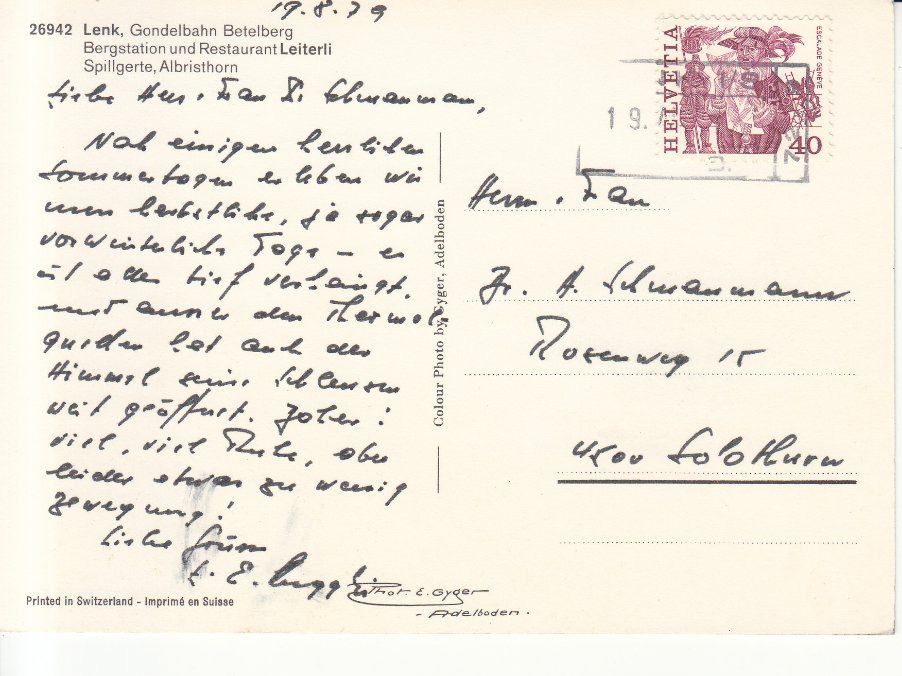 19.8.79
26942 Lenk, Gondelbahn Betelberg
Bergstation und Restaurant Leiterli
Spillgerte, Albristhorn
Liebe Herr + Frau Dr. Schmanmann,
Nach einigen herrlichen
Sommertagen erleben wir
nun herbstliche, ja sogar
vorwinterliche Tage – es
ist alles tief verhängt,
und ausser den Thermal-
quellen hat auch der
Himmel seine Schleusen
weit geöffnet. Daher:
viel, viel Ruhe, aber
leider etwas zu wenig
Bewegung!
Liebe Grüsse
E.
Printed in Switzerland - Imprimé en Suisse
Phot. E. Gyger
- Adelboden -
Colour Photo by Gyger, Adelboden
HELVETIA
ESCALADE GENÈVE
40
19.
Herrn + Frau
Dr. A. Schmanmann
Rosenweg 15
4500 Solothurn